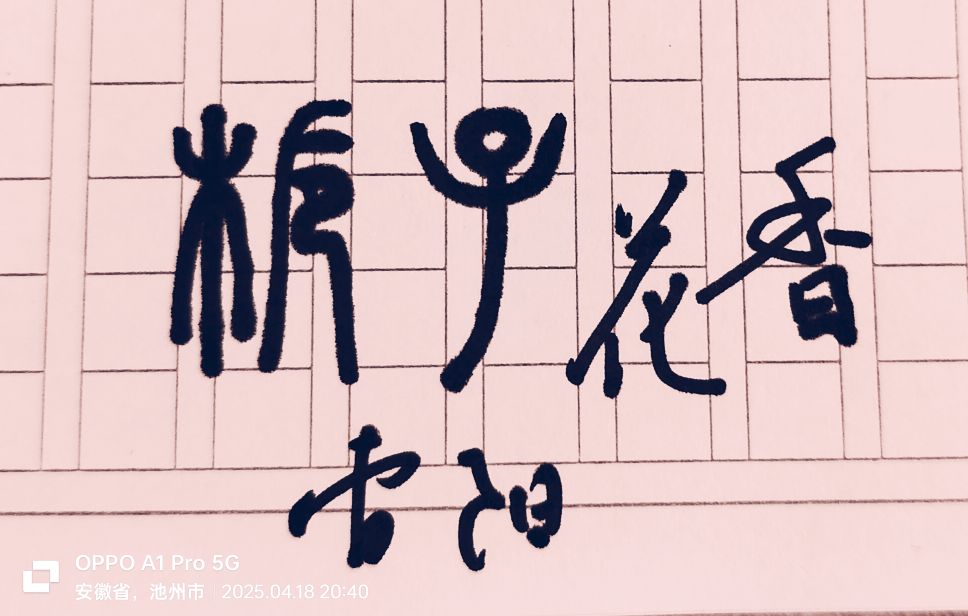 栀子花香
雷阳
OPPO A1 Pro 5G
安徽省，池州市 | 2025.04.18 20:40